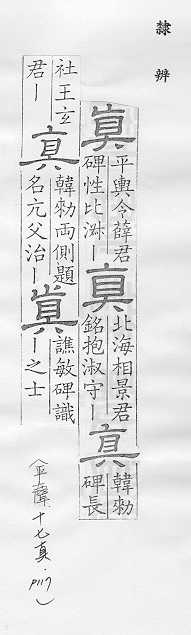 隸辨
眞平輿令薛君碑性比渊｜眞北海相景君銘抱淑守｜眞韓勑碑長
社王玄君｜眞韓勑兩側題名亢父治｜眞譙敏碑識｜之士
(平聲．十七真．P117)